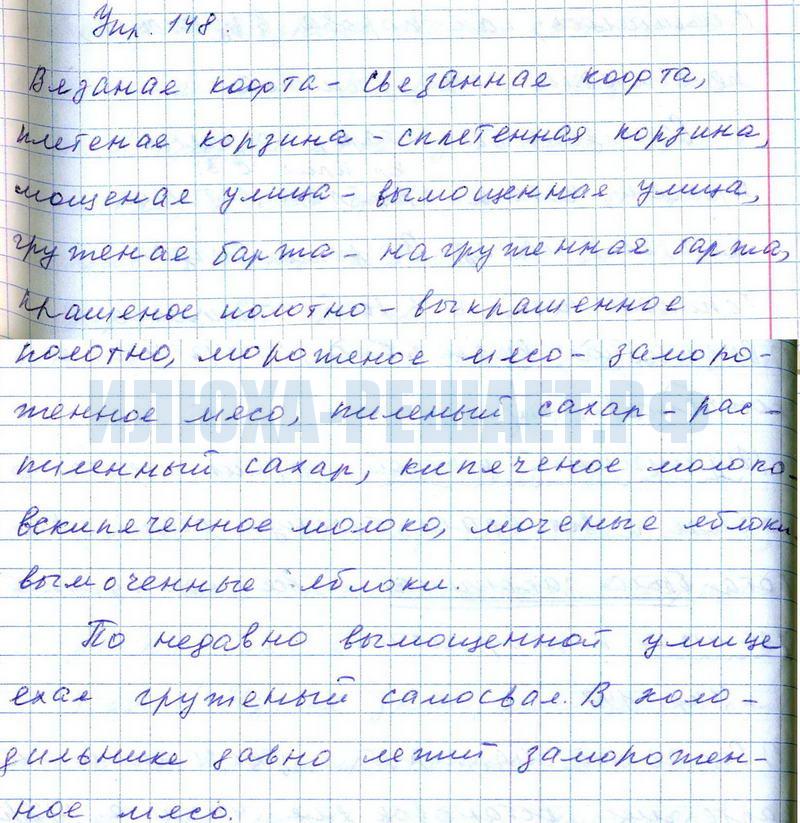 Упр. 148.
Вязаная кофта - связанная кофта,
плетеная корзина - сплетенная корзина,
мощеная улица - вымощенная улица,
груженая баржа - нагруженная баржа,
крашеное полотно - выкрашенное
полотно, мороженое мясо - заморо-
женное мясо, пиленый сахар - рас-
пиленный сахар, кипяченое молоко-
вскипяченное молоко, моченые яблоки
вымоченные яблоки.
По недавно вымощенной улице
ехал груженый самосвал. В холо-
дильнике давно лежит заморожен-
ное мясо.
ИЛЮХА-РЕШАЕТ.РФ